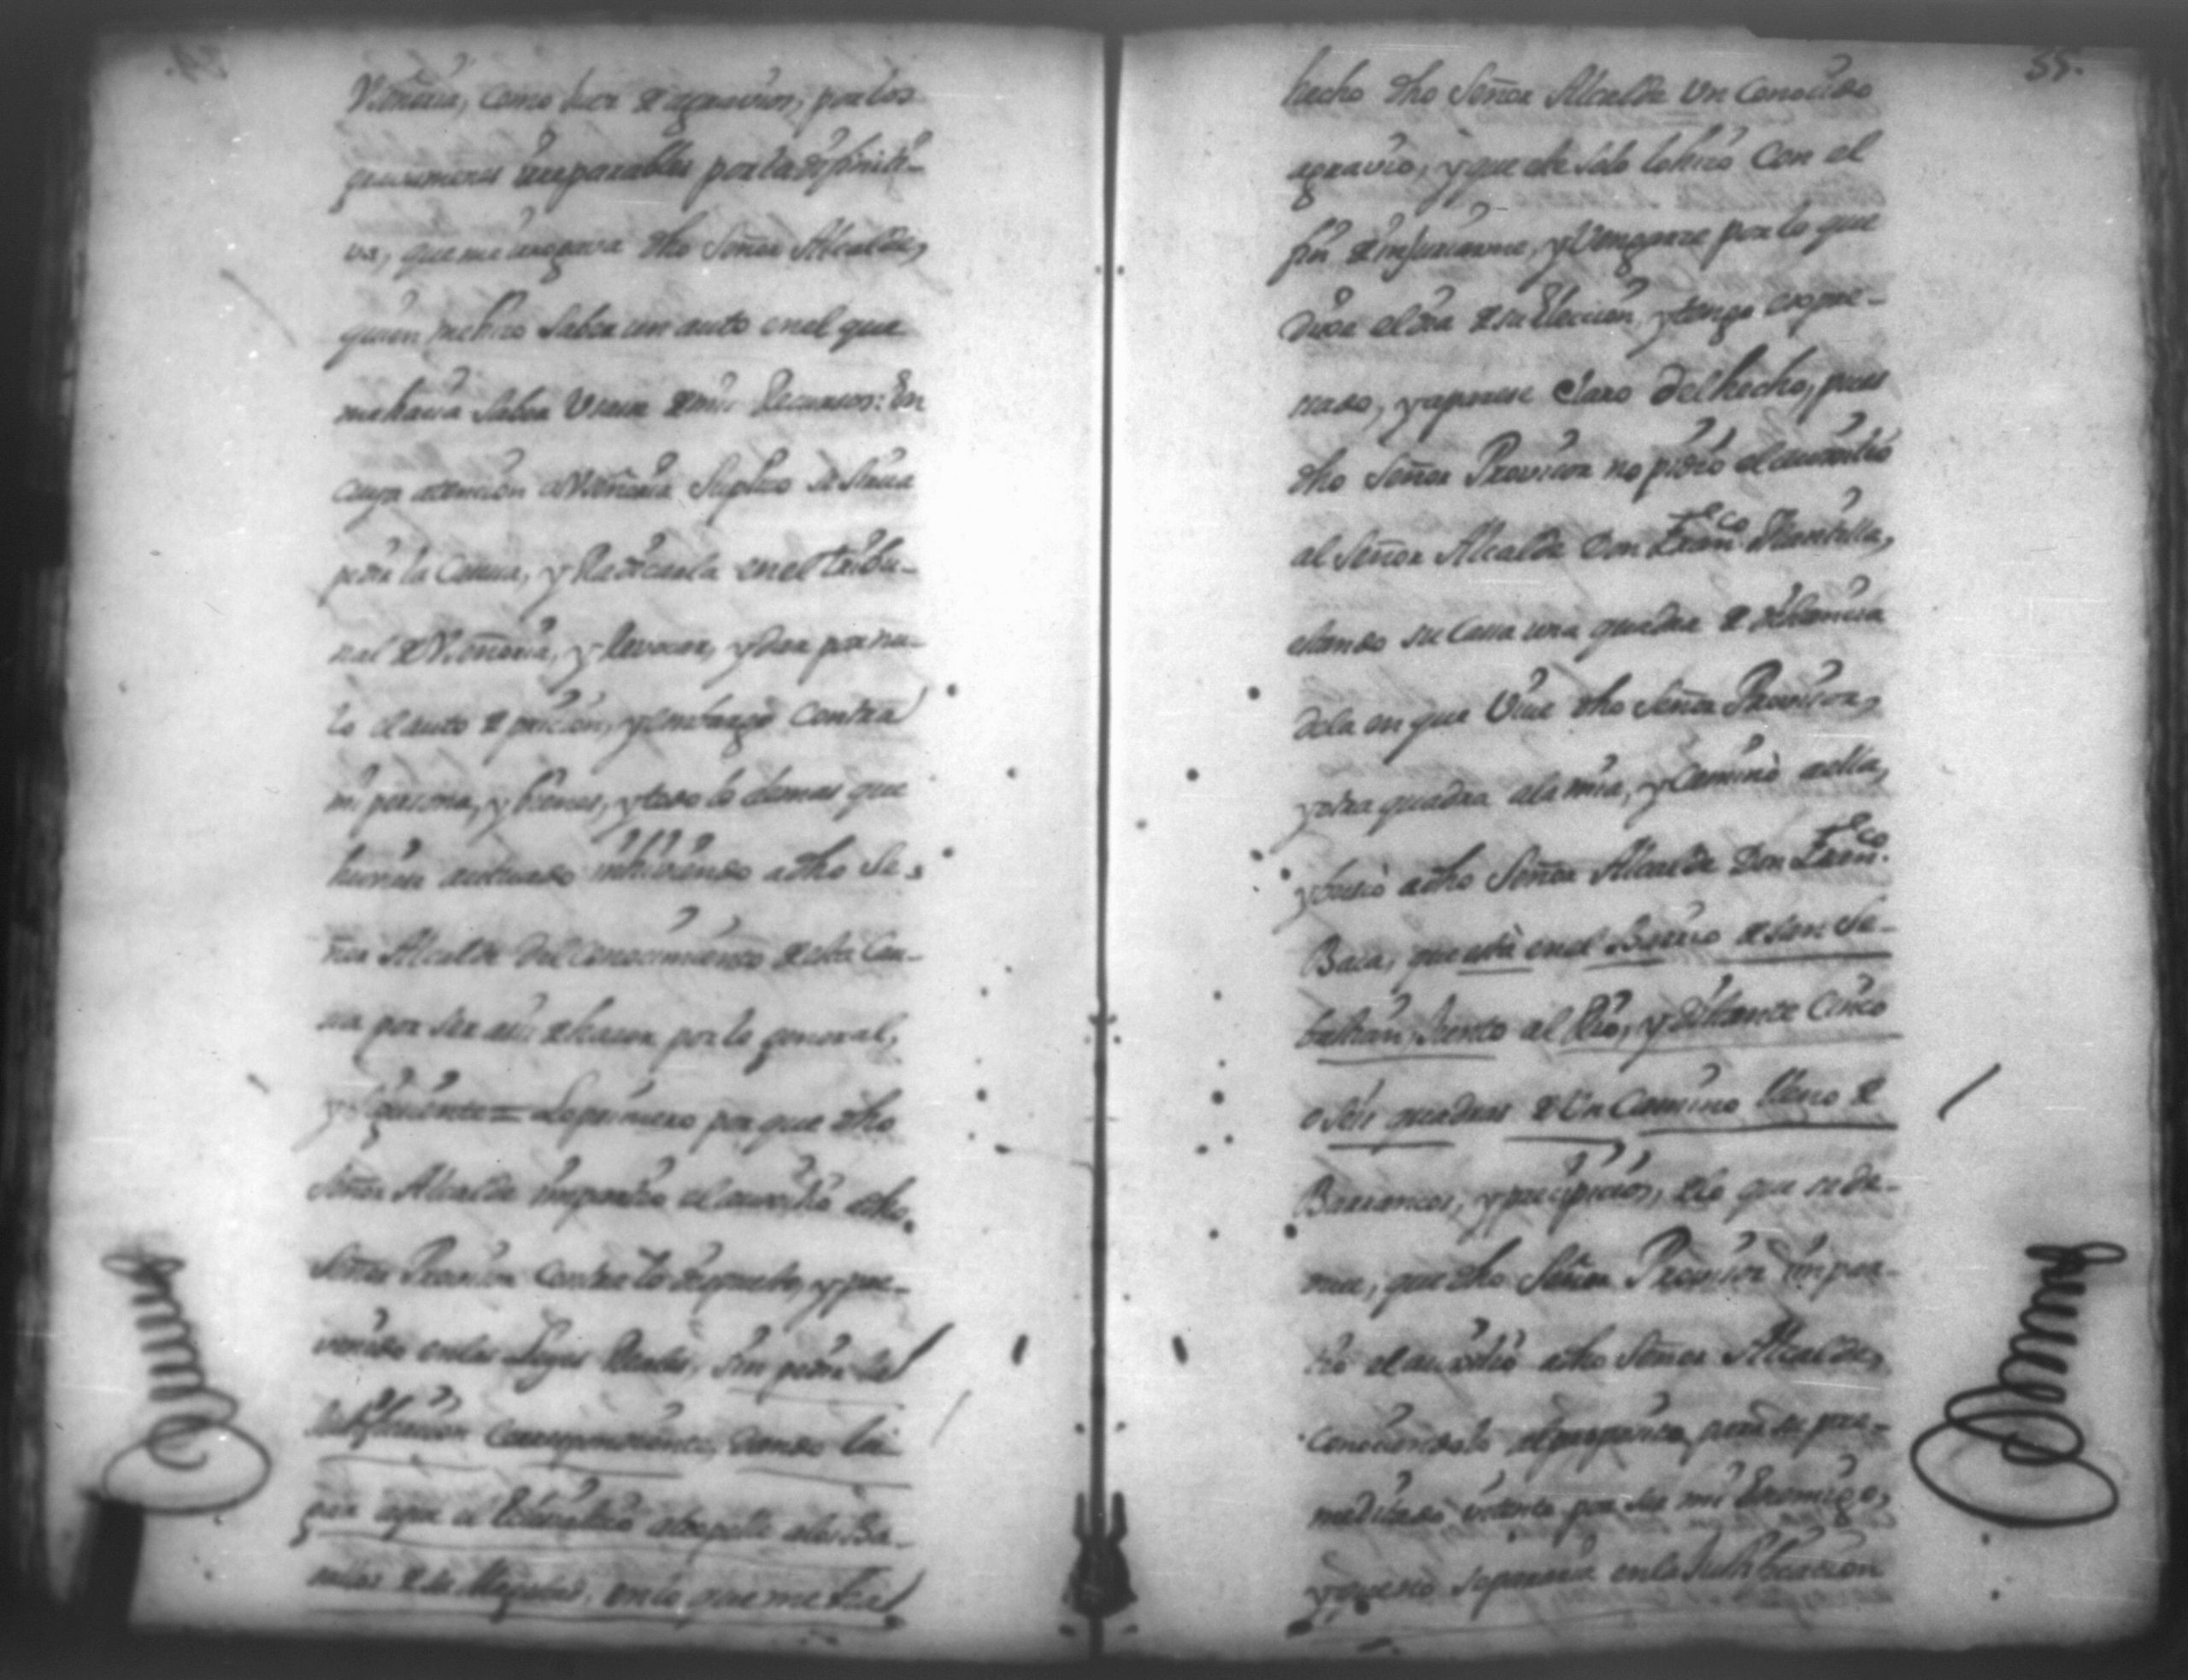 Vseñoria, como Juez de agravios, por los
gravamenes irreparables por la difiniti-
va, que me irrogava dho Señor Alcalde,
quien me hizo saber un auto en el que
me hacia saber Usara de mis Recursos: En
cuya atencion a Vseñoria Suplico se Sirva
pedir la Causa, y Radicarla en el tribu-
nal de Vseñoria, y Revocar, y dar por nu-
lo el auto de pricion, y embargo contra
mi persona, y bienes, y todo lo demas que
huvier actuado inhiviendo a dho Se-
ñor Alcalde del conocimiento de esta Cau-
sa por ser asi de hacer por lo general,
y siguiente = Lo primero por que dho
Señor Alcalde impartio el auxilio a dho
Señor Provisor contra lo dispuesto, y pre-
venido en las Leyes Reales, sin pedir la
Justificacion correspondiente, dando lu-
gar a que el Eclesiastico atropelle a los Va-
sallos de su Magestad, en lo que me hâ
55.
hecho dho Señor Alcalde Un Conocido
agravio, y que este solo lo hizo con el
fin de injuriarme, y Vengarse por lo que
dixe el dia de su Eleccion, y tengo expre-
sado, y aparese claro del hecho, pues
dho Señor Provisor no pidió el auxilio
al Señor Alcalde Don Franco Mantilla,
estando su Casa una quadra de distancia
dela en que Vive dho Señor Provisor,
y otra quadra ala mia, y Caminò aella,
y buscò a dho Señor Alcalde Don Franco
Baca, que està en el Barrio de San Se-
bastian, Junto al Rio, y distante Cinco
o Seis quadras de Un Camino lleno de
Barrancos, y precipicios, de lo que se de-
duce, que dho Señor Provisor impar-
tio el auxilio a dho Señor Alcalde,
conociendolo aproposito para su pre-
meditado intento por ser mi Enemigo,
y que no separaria en la Justificacion